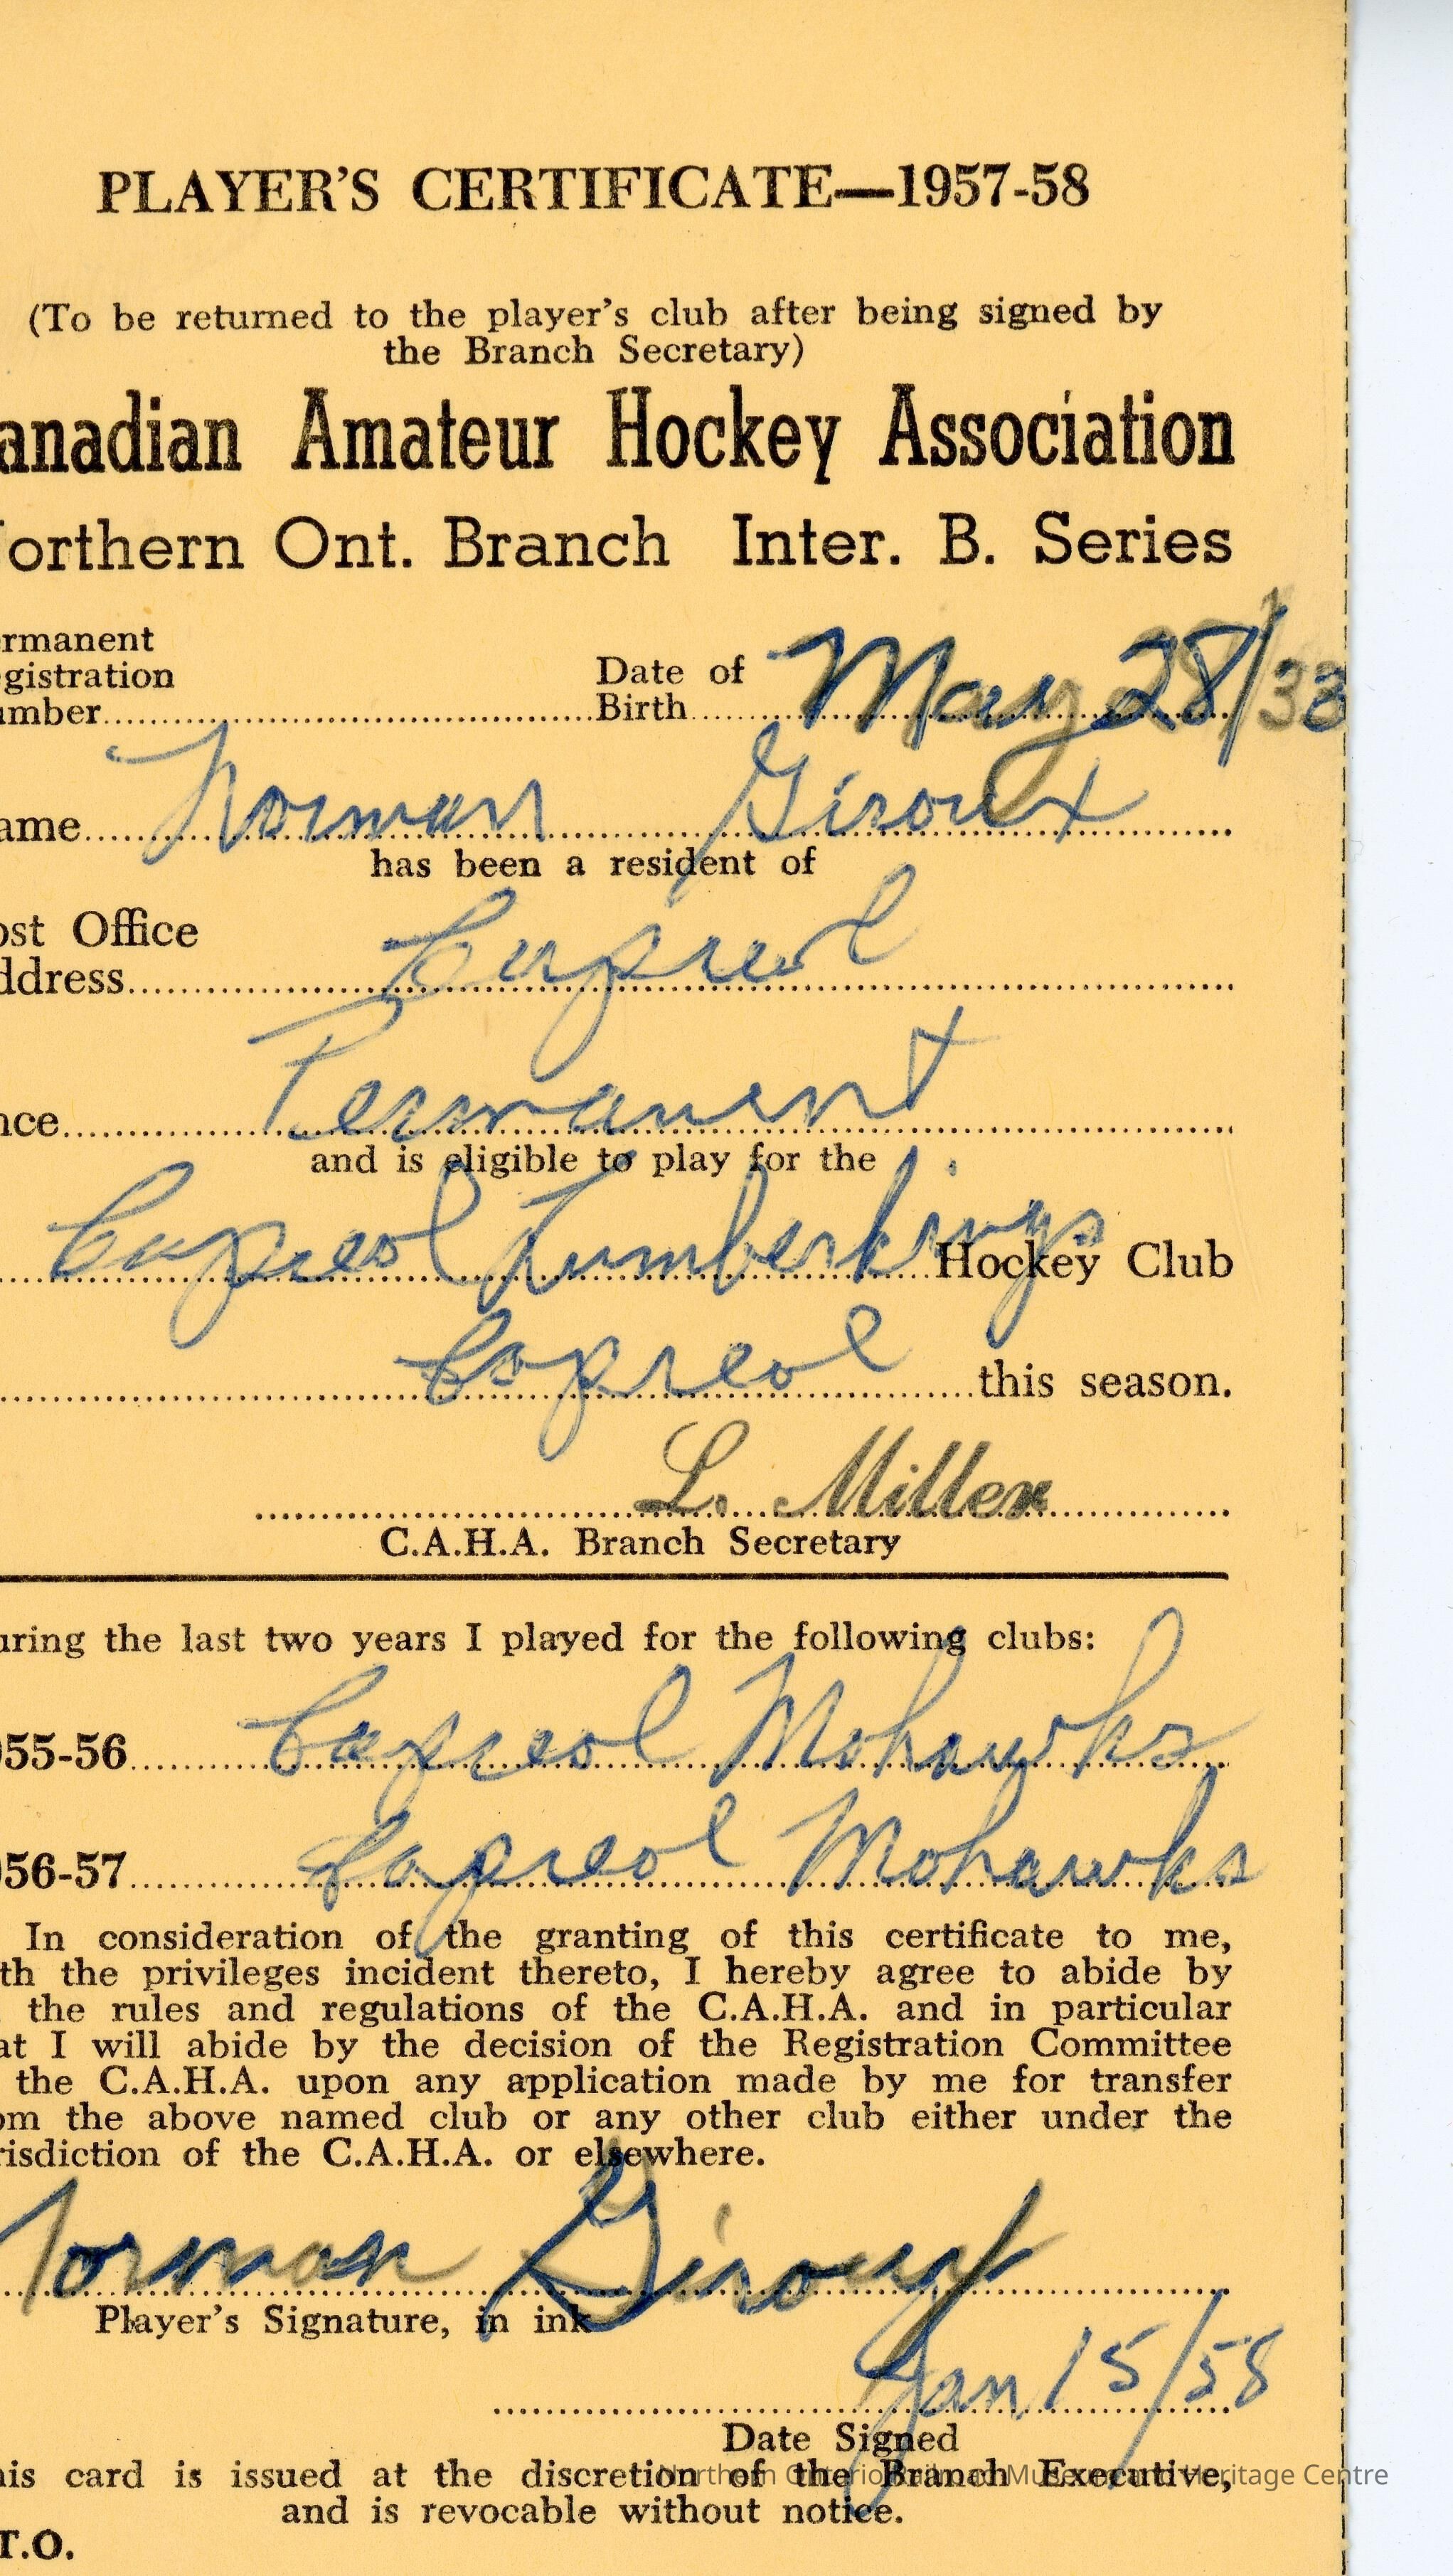 PLAYER'S CERTIFICATE—1957-58
(To be returned to the player's club after being signed by
the Branch Secretary)
anadian Amateur Hockey Association
orthern Ont. Branch Inter. B. Series
ermanent
egistration
umber
Date of
Birth May 28/33
ame Norman Giroux
has been a resident of
ost Office
ddress Capreol
nce Permanent
and is eligible to play for the
Capreol Lumberkings Hockey Club
Capreol this season.
L. Miller
C.A.H.A. Branch Secretary
uring the last two years I played for the following clubs:
955-56 Capreol Mohawks
956-57 Capreol Mohawks
In consideration of the granting of this certificate to me,
th the privileges incident thereto, I hereby agree to abide by
the rules and regulations of the C.A.H.A. and in particular
at I will abide by the decision of the Registration Committee
the C.A.H.A. upon any application made by me for transfer
om the above named club or any other club either under the
risdiction of the C.A.H.A. or elsewhere.
Norman Giroux
Player's Signature, in ink
Jan 15/58
Date Signed
his card is issued at the discretion of the Branch Executive,
Northern Ontario Railroad Museum and Heritage Centre
and is revocable without notice.
T.O.